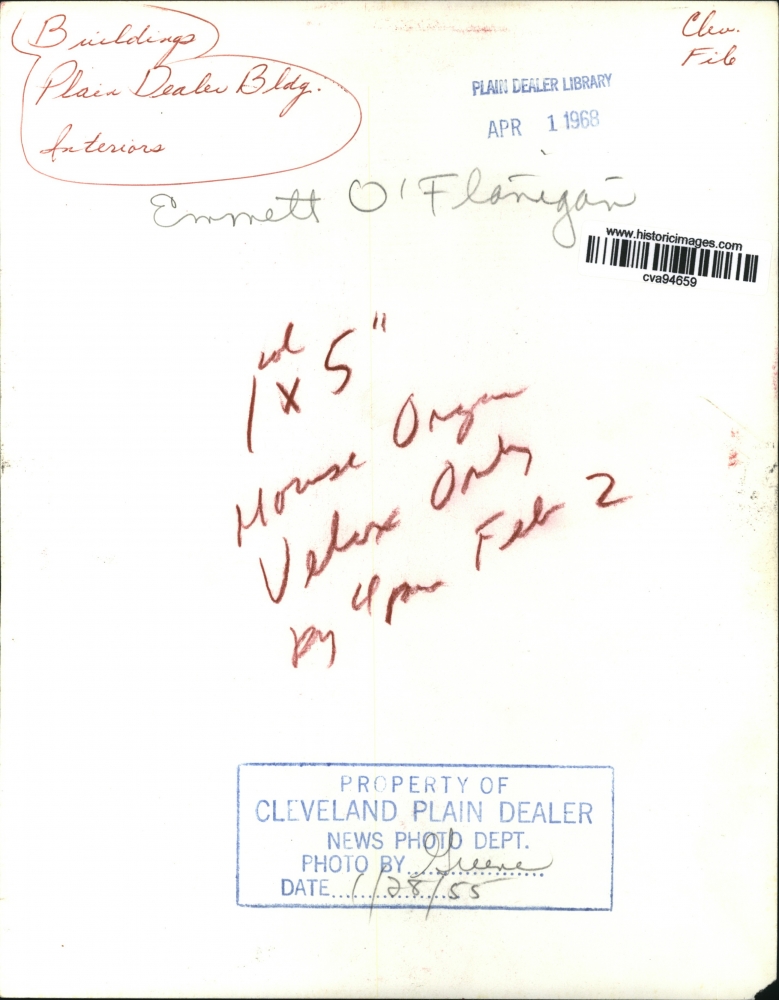 Buildings
Plain Dealer Bldg.
Interiors
Clev.
File
PLAIN DEALER LIBRARY
APR 1 1968
Emmett O'Flanigan
www.historicimages.com
cva94659
col
1 x 5"
House Organ
Velox Only
by 4pm Feb 2
PROPERTY OF
CLEVELAND PLAIN DEALER
NEWS PHOTO DEPT.
PHOTO BY Greene
DATE 1/28/55